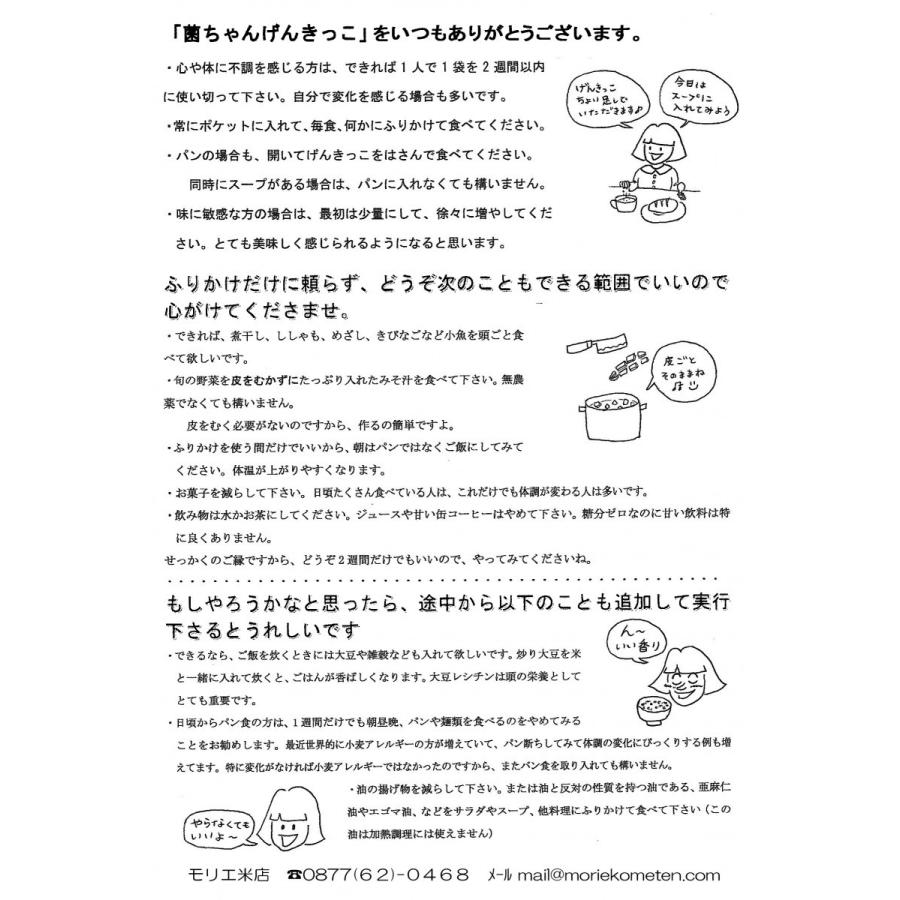 「菌ちゃんげんきっこ」をいつもありがとうございます。
・心や体に不調を感じる方は、できれば１人で１袋を２週間以内
に使い切って下さい。自分で変化を感じる場合も多いです。
・常にポケットに入れて、毎食、何かにふりかけて食べてください。
・パンの場合も、開いてげんきっこをはさんで食べてください。
同時にスープがある場合は、パンに入れなくても構いません。
・味に敏感な方の場合は、最初は少量にして、徐々に増やしてくだ
さい。とても美味しく感じられるようになると思います。
げんきっこ
ちょい足しで
いただきます♪
今日は
スープに
入れてみよう
ふりかけだけに頼らず、どうぞ次のこともできる範囲でいいので
心がけてくださませ。
・できれば、煮干し、ししゃも、めざし、きびなごなど小魚を頭ごと食
べて欲しいです。
・旬の野菜を皮をむかずにたっぷり入れたみそ汁を食べて下さい。無農
薬でなくても構いません。
皮をむく必要がないのですから、作るの簡単ですよ。
・ふりかけを使う間だけでいいから、朝はパンではなくご飯にしてみて
ください。体温が上がりやすくなります。
・お菓子を減らして下さい。日頃たくさん食べている人は、これだけでも体調が変わる人は多いです。
・飲み物は水かお茶にしてください。ジュースや甘い缶コーヒーはやめて下さい。糖分ゼロなのに甘い飲料は特
に良くありません。
せっかくのご縁ですから、どうぞ２週間だけでもいいので、やってみてくださいね。
皮ごと
そのままね
♫
もしやろうかなと思ったら、途中から以下のことも追加して実行
下さるとうれしいです
・できるなら、ご飯を炊くときには大豆や雑穀なども入れて欲しいです。炒り大豆を米
と一緒に入れて炊くと、ごはんが香ばしくなります。大豆レシチンは頭の栄養として
とても重要です。
ん〜
いい香り
・日頃からパン食の方は、１週間だけでも朝昼晩、パンや麺類を食べるのをやめてみる
ことをお勧めします。最近世界的に小麦アレルギーの方が増えていて、パン断ちしてみて体調の変化にびっくりする例も増
えてます。特に変化がなければ小麦アレルギーではなかったのですから、またパン食を取り入れても構いません。
・油の揚げ物を減らして下さい。または油と反対の性質を持つ油である、亜麻仁
油やエゴマ油、などをサラダやスープ、他料理にふりかけて食べて下さい（この
油は加熱調理には使えません）
やらなくても
いいよ〜
モリエ米店　☎0877(62)-0468　ﾒｰﾙ mail@moriekometen.com